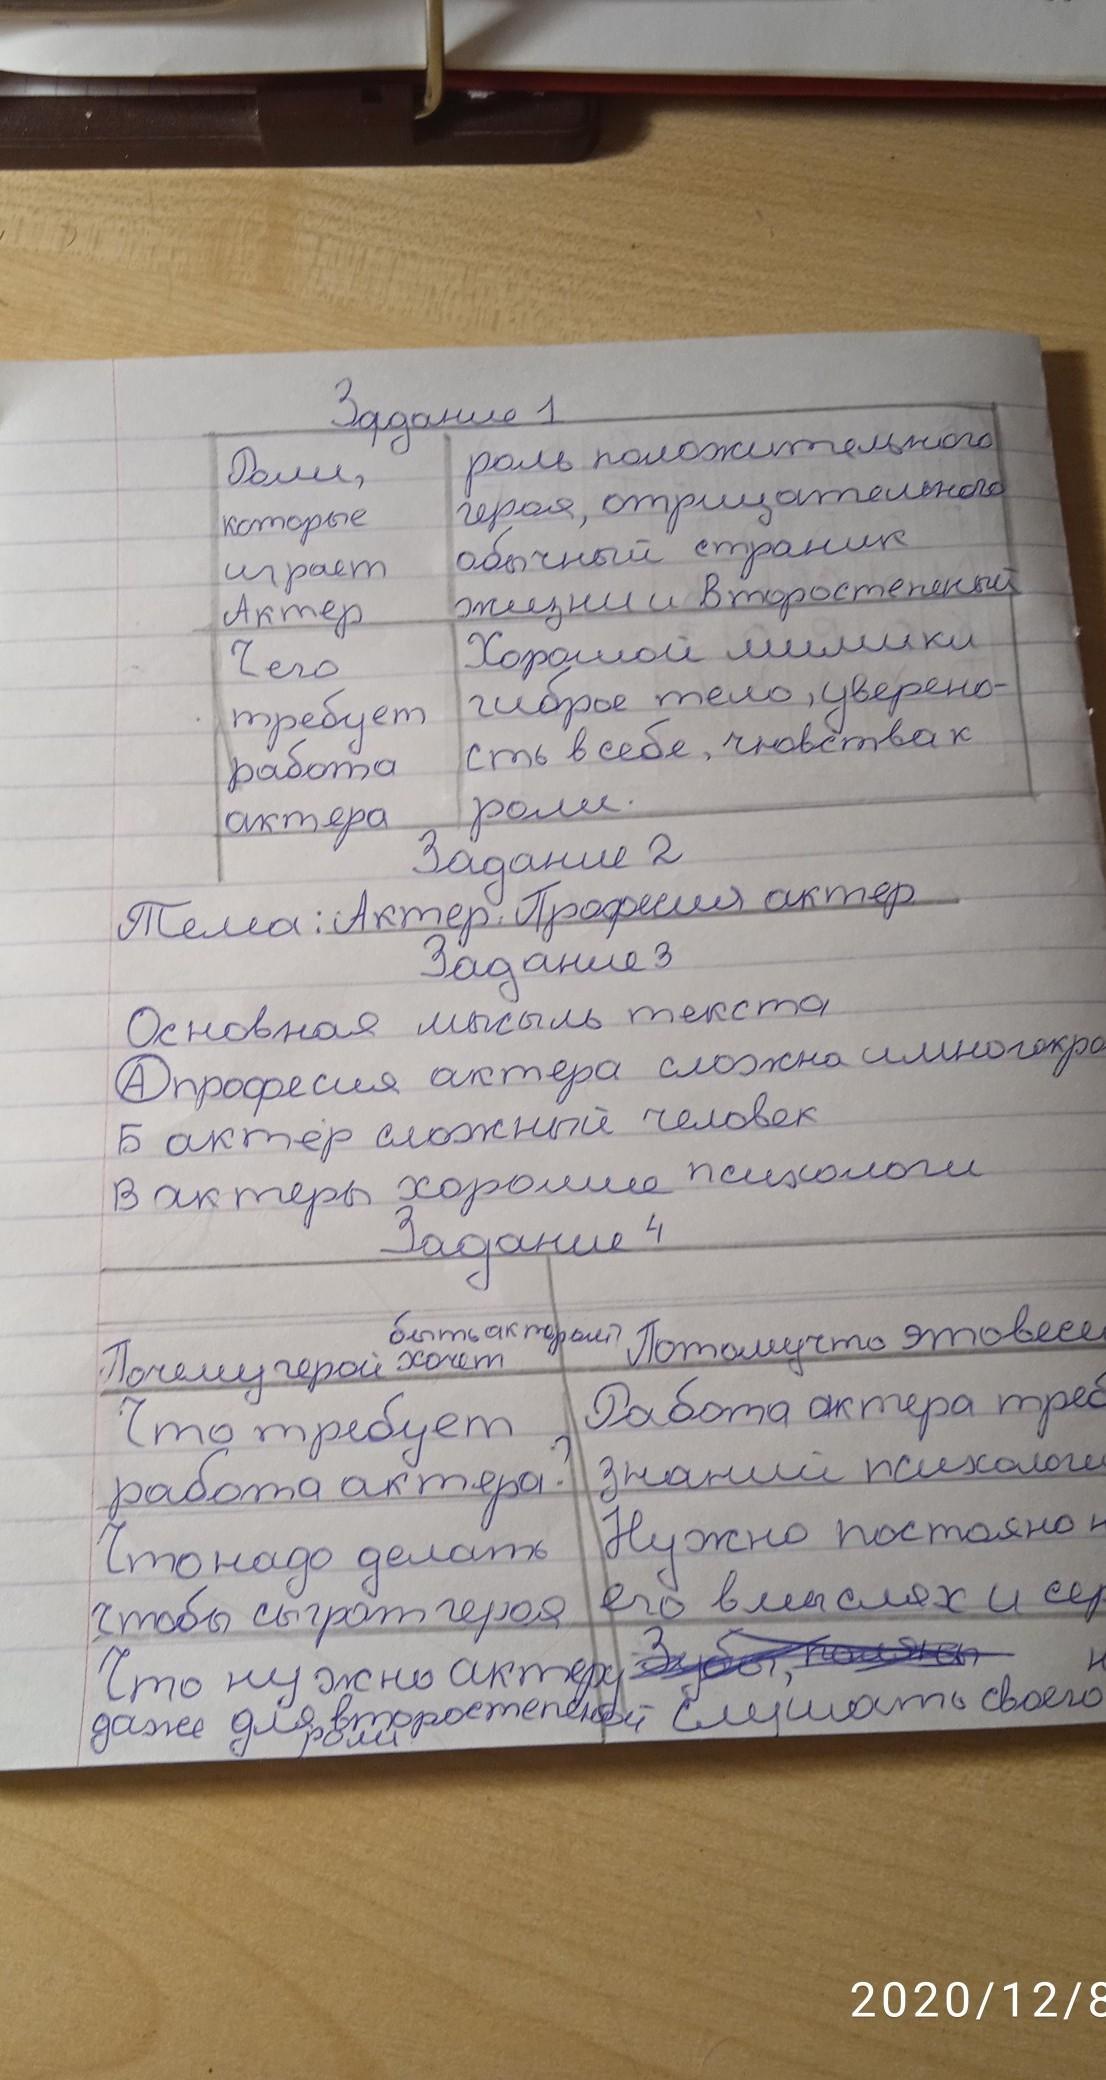 Задание 1
Роли, роль положительного
которые героя, отрицательного
играет обычный страник
Актер жизни и Второстепеный
Чего Хорошой мимики
требует гиброе тело, уверено-
работа сть в себе, чновства к
актера роли.
Задание 2
Тема: Актер. Професия актер
Задание 3
Основная мысыль текста
А професия актера сложна и многокра
Б актер сложный человек
В актеры хорошие психологи
Задание 4
быть актором?
Почему герой хочет Потомучто это весе
Что требует Работа актера треб
работа актера? знаний психологи
Что надо делать Нужно постояно н
чтобы сыграт героя его в мыслях и сер
Что нужно актеру н
даже для второстепеной Слушать своего
роли
2020/12/8